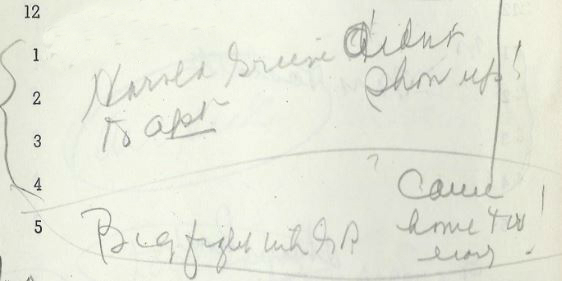 12
1 Harold Didnt
2 show up!
3 to apt
4 Came
5 Big fight with home too !
early